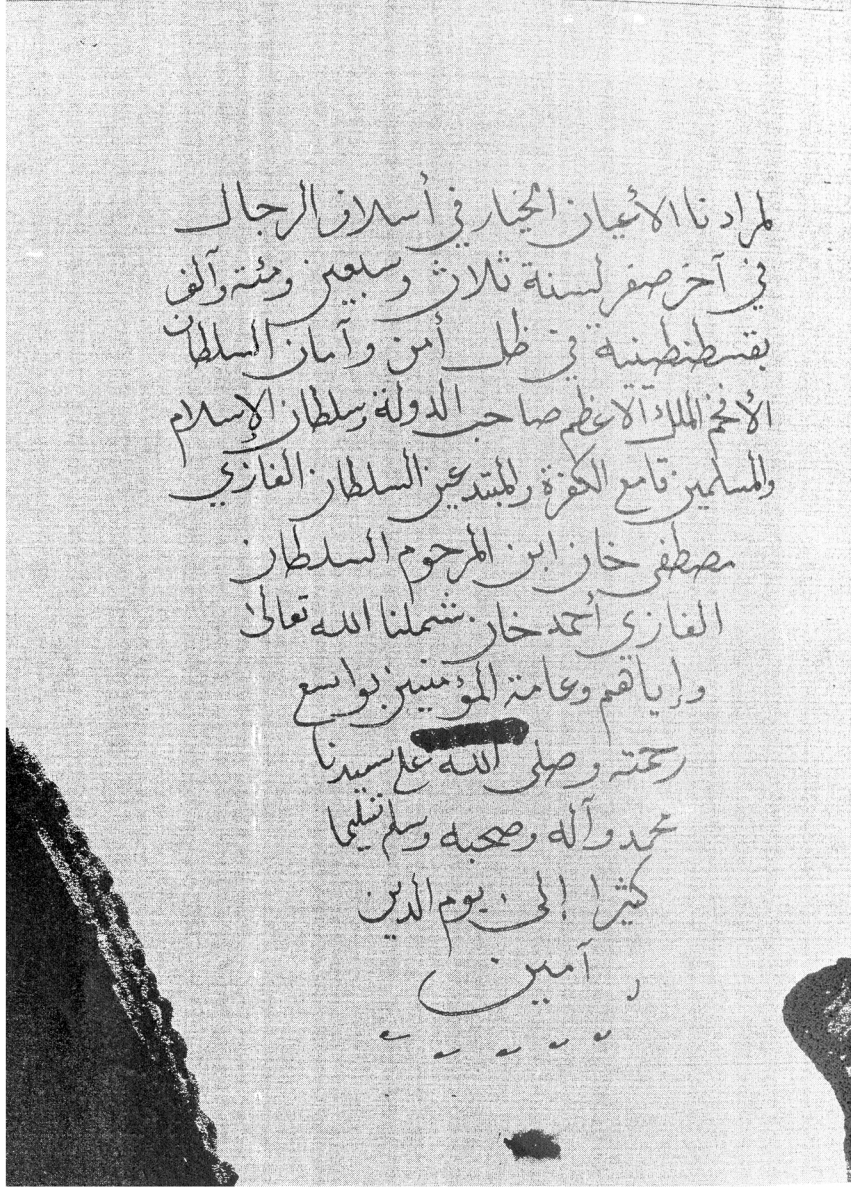 لمرادنا الأعيان الخيار في أسلاف الرجال
في آخر صفر لسنة ثلاث وسبعين ومئة وألف
بقسطنطينية في ظل أمن وآمان السلطان
الأفخم الملك الاعظم صاحب الدولة وسلطان الإسلام
والمسلمين قامع الكفرة والمبتدعين السلطان الغازي
مصطفى خان ابن المرحوم السلطان
الغازي أحمد خان شملنا الله تعالى
وإياهم وعامة المؤمنين بواسع
رحمته وصلى الله على سيدنا
محمد وآله وصحبه وسلم تسليما
كثيرا إلى يوم الدين
آمين